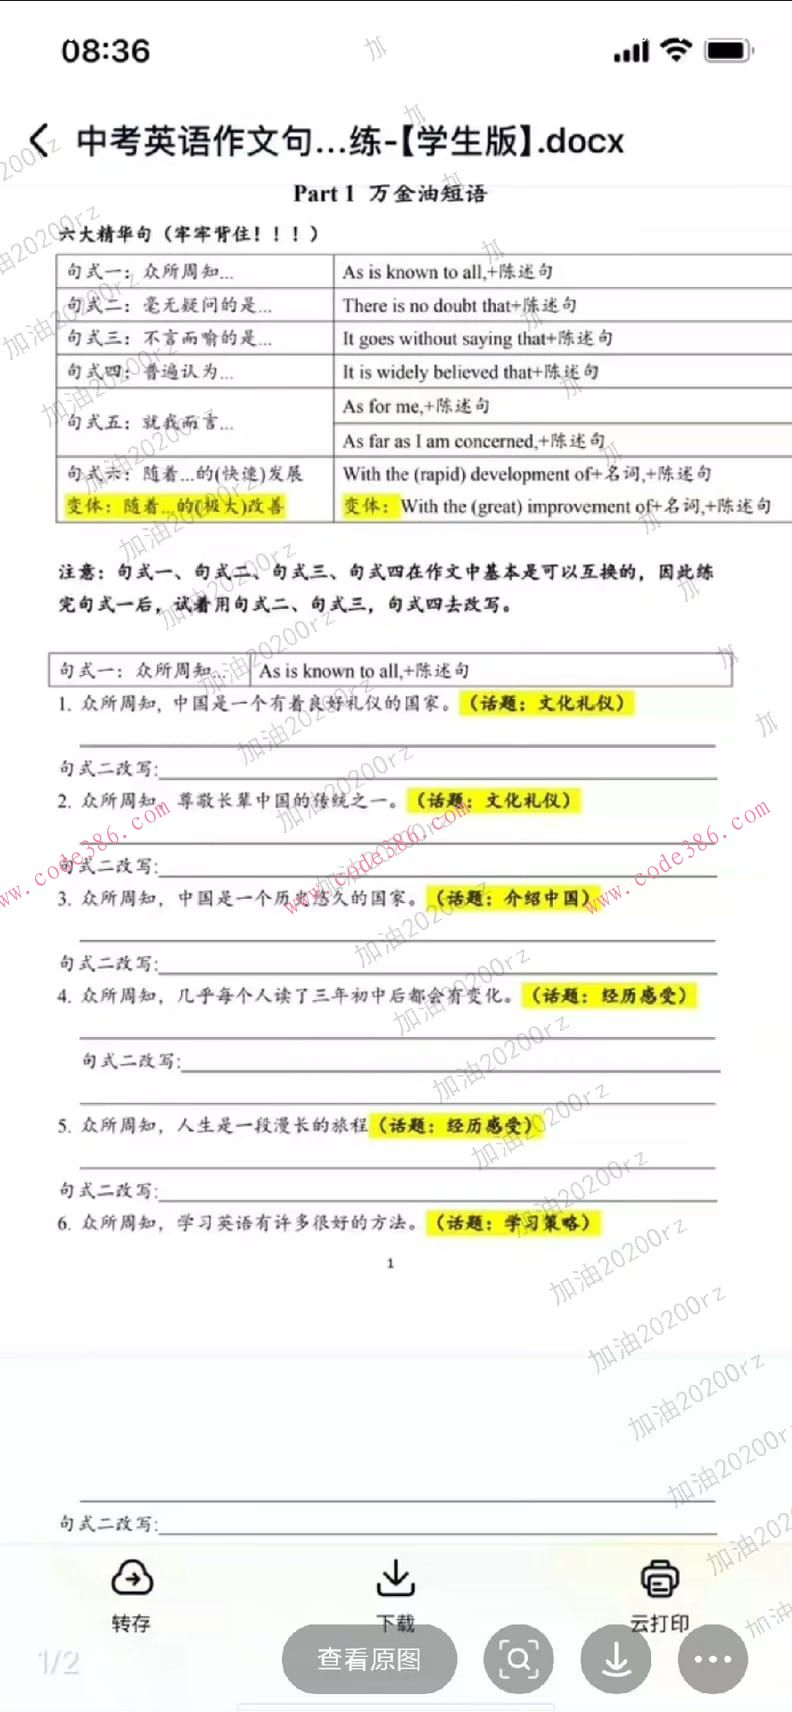 08:36
中考英语作文句...练-【学生版】.docx
Part 1 万金油短语
六大精华句（牢牢背住！！！）
句式一：众所周知... As is known to all,+陈述句
句式二：毫无疑问的是... There is no doubt that+陈述句
句式三：不言而喻的是... It goes without saying that+陈述句
句式四：普遍认为... It is widely believed that+陈述句
句式五：就我而言... As for me,+陈述句
As far as I am concerned,+陈述句
句式六：随着...的(快速)发展 With the (rapid) development of+名词,+陈述句
变体：随着...的(极大)改善 变体：With the (great) improvement of+名词,+陈述句
注意：句式一、句式二、句式三、句式四在作文中基本是可以互换的，因此练
完句式一后，试着用句式二、句式三，句式四去改写。
句式一：众所周知... As is known to all,+陈述句
1. 众所周知，中国是一个有着良好礼仪的国家。（话题：文化礼仪）
句式二改写:
2. 众所周知，尊敬长辈中国的传统之一。（话题：文化礼仪）
句式二改写:
3. 众所周知，中国是一个历史悠久的国家。（话题：介绍中国）
句式二改写:
4. 众所周知，几乎每个人读了三年初中后都会有变化。（话题：经历感受）
句式二改写:
5. 众所周知，人生是一段漫长的旅程（话题：经历感受）
句式二改写:
6. 众所周知，学习英语有许多很好的方法。（话题：学习策略）
1
句式二改写:
转存 下载 云打印
1/2 查看原图
www.code386.com
www.code386.com
www.code386.com
加油20200rz